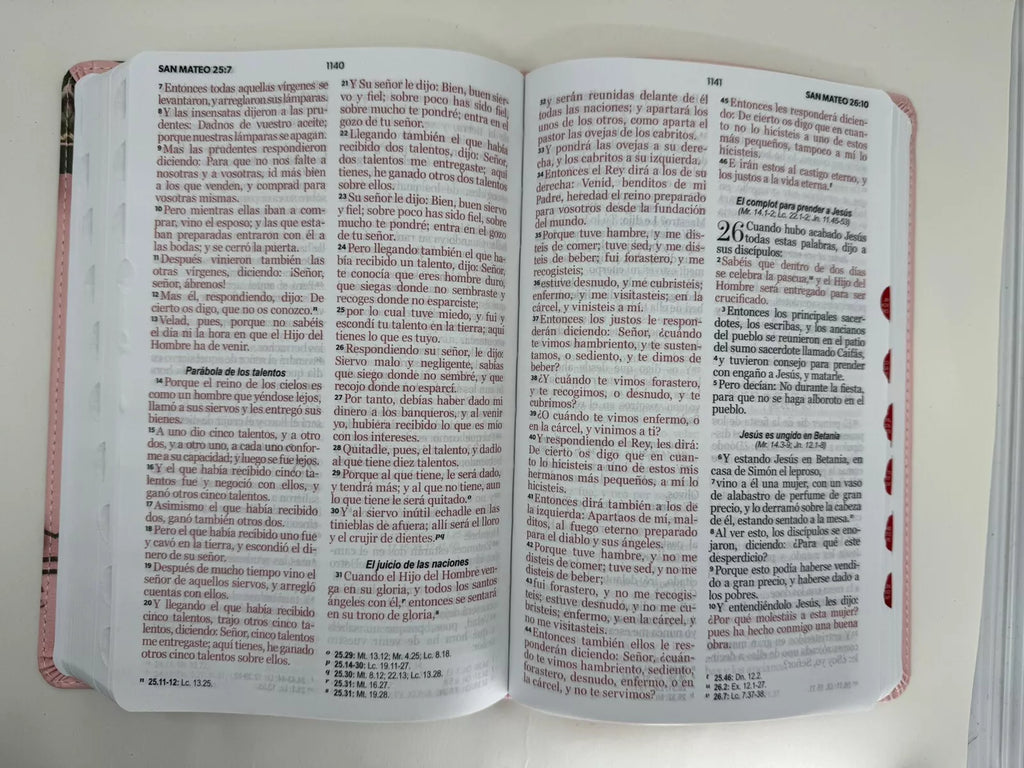 SAN MATEO 25:7
1140
⁷ Entonces todas aquellas vírgenes se
levantaron, y arreglaron sus lámparas.
⁸ Y las insensatas dijeron a las pru-
dentes: Dadnos de vuestro aceite;
porque nuestras lámparas se apagan.
⁹ Mas las prudentes respondieron
diciendo: Para que no nos falte a
nosotras y a vosotras, id más bien
a los que venden, y comprad para
vosotras mismas.
¹⁰ Pero mientras ellas iban a com-
prar, vino el esposo; y las que esta-
ban preparadas entraron con él a
las bodas; y se cerró la puerta.
¹¹ Después vinieron también las
otras vírgenes, diciendo: ¡Señor,
señor, ábrenos!
¹² Mas él, respondiendo, dijo: De
cierto os digo, que no os conozco.ⁿ
¹³ Velad, pues, porque no sabéis
el día ni la hora en que el Hijo del
Hombre ha de venir.
Parábola de los talentos
¹⁴ Porque el reino de los cielos es
como un hombre que yéndose lejos,
llamó a sus siervos y les entregó sus
bienes.
¹⁵ A uno dio cinco talentos, y a otro
dos, y a otro uno, a cada uno confor-
me a su capacidad; y luego se fue lejos.
¹⁶ Y el que había recibido cinco ta-
lentos fue y negoció con ellos, y
ganó otros cinco talentos.
¹⁷ Asimismo el que había recibido
dos, ganó también otros dos.
¹⁸ Pero el que había recibido uno fue
y cavó en la tierra, y escondió el di-
nero de su señor.
¹⁹ Después de mucho tiempo vino el
señor de aquellos siervos, y arregló
cuentas con ellos.
²⁰ Y llegando el que había recibido
cinco talentos, trajo otros cinco ta-
lentos, diciendo: Señor, cinco talentos
me entregaste; aquí tienes, he ganado
otros cinco talentos sobre ellos.
ⁿ 25.11-12: Lc. 13.25.
²¹ Y Su señor le dijo: Bien, buen sier-
vo y fiel; sobre poco has sido fiel,
sobre mucho te pondré; entra en el
gozo de tu señor.
²² Llegando también el que había
recibido dos talentos, dijo: Señor,
dos talentos me entregaste; aquí
tienes, he ganado otros dos talentos
sobre ellos.
²³ Su señor le dijo: Bien, buen siervo
y fiel; sobre poco has sido fiel, sobre
mucho te pondré; entra en el gozo
de tu señor.
²⁴ Pero llegando también el que ha-
bía recibido un talento, dijo: Señor,
te conocía que eres hombre duro,
que siegas donde no sembraste y
recoges donde no esparciste;
²⁵ por lo cual tuve miedo, y fui y
escondí tu talento en la tierra; aquí
tienes lo que es tuyo.
²⁶ Respondiendo su señor, le dijo:
Siervo malo y negligente, sabías
que siego donde no sembré, y que
recojo donde no esparcí.
²⁷ Por tanto, debías haber dado mi
dinero a los banqueros, y al venir
yo, hubiera recibido lo que es mío
con los intereses.
²⁸ Quitadle, pues, el talento, y dadlo
al que tiene diez talentos.
²⁹ Porque al que tiene, le será dado,
y tendrá más; y al que no tiene, aun
lo que tiene le será quitado.º
³⁰ Y al siervo inútil echadle en las
tinieblas de afuera; allí será el lloro
y el crujir de dientes.pq
El juicio de las naciones
³¹ Cuando el Hijo del Hombre ven-
ga en su gloria, y todos los santos
ángeles con él,ʳ entonces se sentará
en su trono de gloria,ˢ
º 25.29: Mt. 13.12; Mr. 4.25; Lc. 8.18.
p 25.14-30: Lc. 19.11-27.
q 25.30: Mt. 8.12; 22.13; Lc. 13.28.
ʳ 25.31: Mt. 16.27.
ˢ 25.31: Mt. 19.28.
1141
SAN MATEO 26:10
³² y serán reunidas delante de él
todas las naciones; y apartará los
unos de los otros, como aparta el
pastor las ovejas de los cabritos.
³³ Y pondrá las ovejas a su dere-
cha, y los cabritos a su izquierda.
³⁴ Entonces el Rey dirá a los de su
derecha: Venid, benditos de mi
Padre, heredad el reino preparado
para vosotros desde la fundación
del mundo.
³⁵ Porque tuve hambre, y me dis-
teis de comer; tuve sed, y me dis-
teis de beber; fui forastero, y me
recogisteis;
³⁶ estuve desnudo, y me cubristeis;
enfermo, y me visitasteis; en la
cárcel, y vinisteis a mí.
³⁷ Entonces los justos le respon-
derán diciendo: Señor, ¿cuándo
te vimos hambriento, y te susten-
tamos, o sediento, y te dimos de
beber?
³⁸ ¿Y cuándo te vimos forastero,
y te recogimos, o desnudo, y te
cubrimos?
³⁹ ¿O cuándo te vimos enfermo, o
en la cárcel, y vinimos a ti?
⁴⁰ Y respondiendo el Rey, les dirá:
De cierto os digo que en cuan-
to lo hicisteis a uno de estos mis
hermanos más pequeños, a mí lo
hicisteis.
⁴¹ Entonces dirá también a los de
la izquierda: Apartaos de mí, mal-
ditos, al fuego eterno preparado
para el diablo y sus ángeles.
⁴² Porque tuve hambre, y no me
disteis de comer; tuve sed, y no me
disteis de beber;
⁴³ fui forastero, y no me recogis-
teis; estuve desnudo, y no me cu-
bristeis; enfermo, y en la cárcel, y
no me visitasteis.
⁴⁴ Entonces también ellos le res-
ponderán diciendo: Señor, ¿cuán-
do te vimos hambriento, sediento,
forastero, desnudo, enfermo, o en
la cárcel, y no te servimos?
⁴⁵ Entonces les responderá dicien-
do: De cierto os digo que en cuan-
to no lo hicisteis a uno de estos
más pequeños, tampoco a mí lo
hicisteis.
⁴⁶ E irán estos al castigo eterno, y
los justos a la vida eterna.ᵗ
El complot para prender a Jesús
(Mr. 14.1-2; Lc. 22.1-2; Jn. 11.45-53)
26 Cuando hubo acabado Jesús
todas estas palabras, dijo a
sus discípulos:
² Sabéis que dentro de dos días
se celebra la pascua,ᵘ y el Hijo del
Hombre será entregado para ser
crucificado.
³ Entonces los principales sacer-
dotes, los escribas, y los ancianos
del pueblo se reunieron en el patio
del sumo sacerdote llamado Caifás,
⁴ y tuvieron consejo para prender
con engaño a Jesús, y matarle.
⁵ Pero decían: No durante la fiesta,
para que no se haga alboroto en el
pueblo.
Jesús es ungido en Betania
(Mr. 14.3-9; Jn. 12.1-8)
⁶ Y estando Jesús en Betania, en
casa de Simón el leproso,
⁷ vino a él una mujer, con un vaso
de alabastro de perfume de gran
precio, y lo derramó sobre la cabeza
de él, estando sentado a la mesa.ᵛ
⁸ Al ver esto, los discípulos se eno-
jaron, diciendo: ¿Para qué este
desperdicio?
⁹ Porque esto podía haberse vendi-
do a gran precio, y haberse dado a
los pobres.
¹⁰ Y entendiéndolo Jesús, les dijo:
¿Por qué molestáis a esta mujer?
pues ha hecho conmigo una buena
obra.
ᵗ 25.46: Dn. 12.2.
ᵘ 26.2: Ex. 12.1-27.
ᵛ 26.7: Lc. 7.37-38.